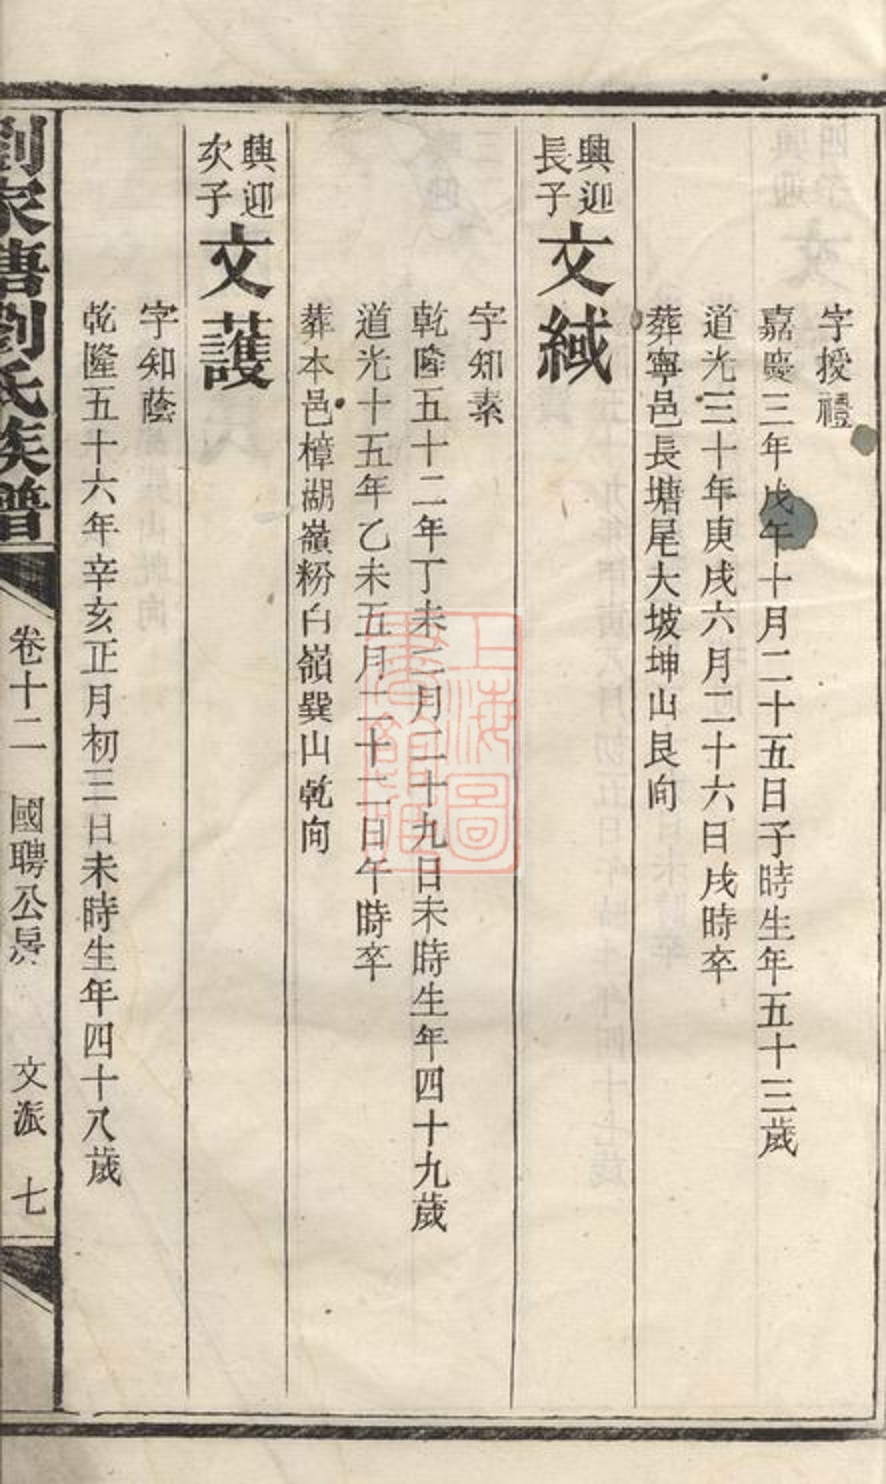 字授禮
嘉慶三年戊午十月二十五日子時生年五十三歲
道光三十年庚戌六月二十六日戌時卒
葬寧邑長塘尾大坡坤山艮向
興迎
長子
文緎
字知素
乾隆五十二年丁未三月二十九日未時生年四十九歲
道光十五年乙未五月二十二日午時卒
葬本邑樟湖嶺粉白嶺巽山乾向
興迎
次子
文護
字知蔭
乾隆五十六年辛亥正月初三日未時生年四十八歲
劉家塘劉氏族譜
卷十二 國聘公房 文派 七
上海圖
書館藏